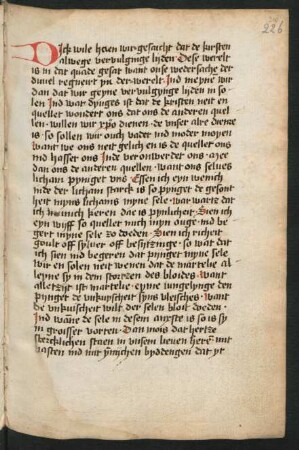 226
Dick wile haen wir gesacht dat de kirsten
alwege vervulginge lyden Dese werelt
is in dat quade gesat want onse wedersache der
duuel regneirt yn der werelt Ind meyne wir
dan dat wir geyne vervulgynge lyden in so
len Ind wat dynges ist dat de kirsten neit en
wondert ons dat ons de anderen quel
len willen wir dienen de unser alre dienst
is so sollen wir ouch vader ind moder moyen
Want we ons neit gelich en is de queller ons
ind hasser ons Inde veronwerdet ons mee
dan ons de anderen quellen want ons selues
licham pynget uns Essen ich eyn wenich
inde der licham starck is so pynget de gesont
heit myns lichams myne sele war wartz dat
ich mich keren dae is pynlicheit Sien ich
eyn wyff so queller mich myn ouge ind be
gert myne sele zo doeden Sien ich richeit
goult off syluer off besytzinge so wat dat
ich sien ind begeren dat pynget myne sele
wir en solen neit wenen dat de martelie al
leyne sy in dem stortzen des bloides want
alletzijt ist martelie eyme iungelynge den
pynget de unkuyscheit syns vleisches want
de unkuischeit wilt der selen bloit doeden
Ind wanne de sele in desem anxste is so is sy
in groisser vorten Dan mois dat hertze
sterclichen staen in unsem lieuen heren mit
vasten ind mit ynnichen byddengen dat yt